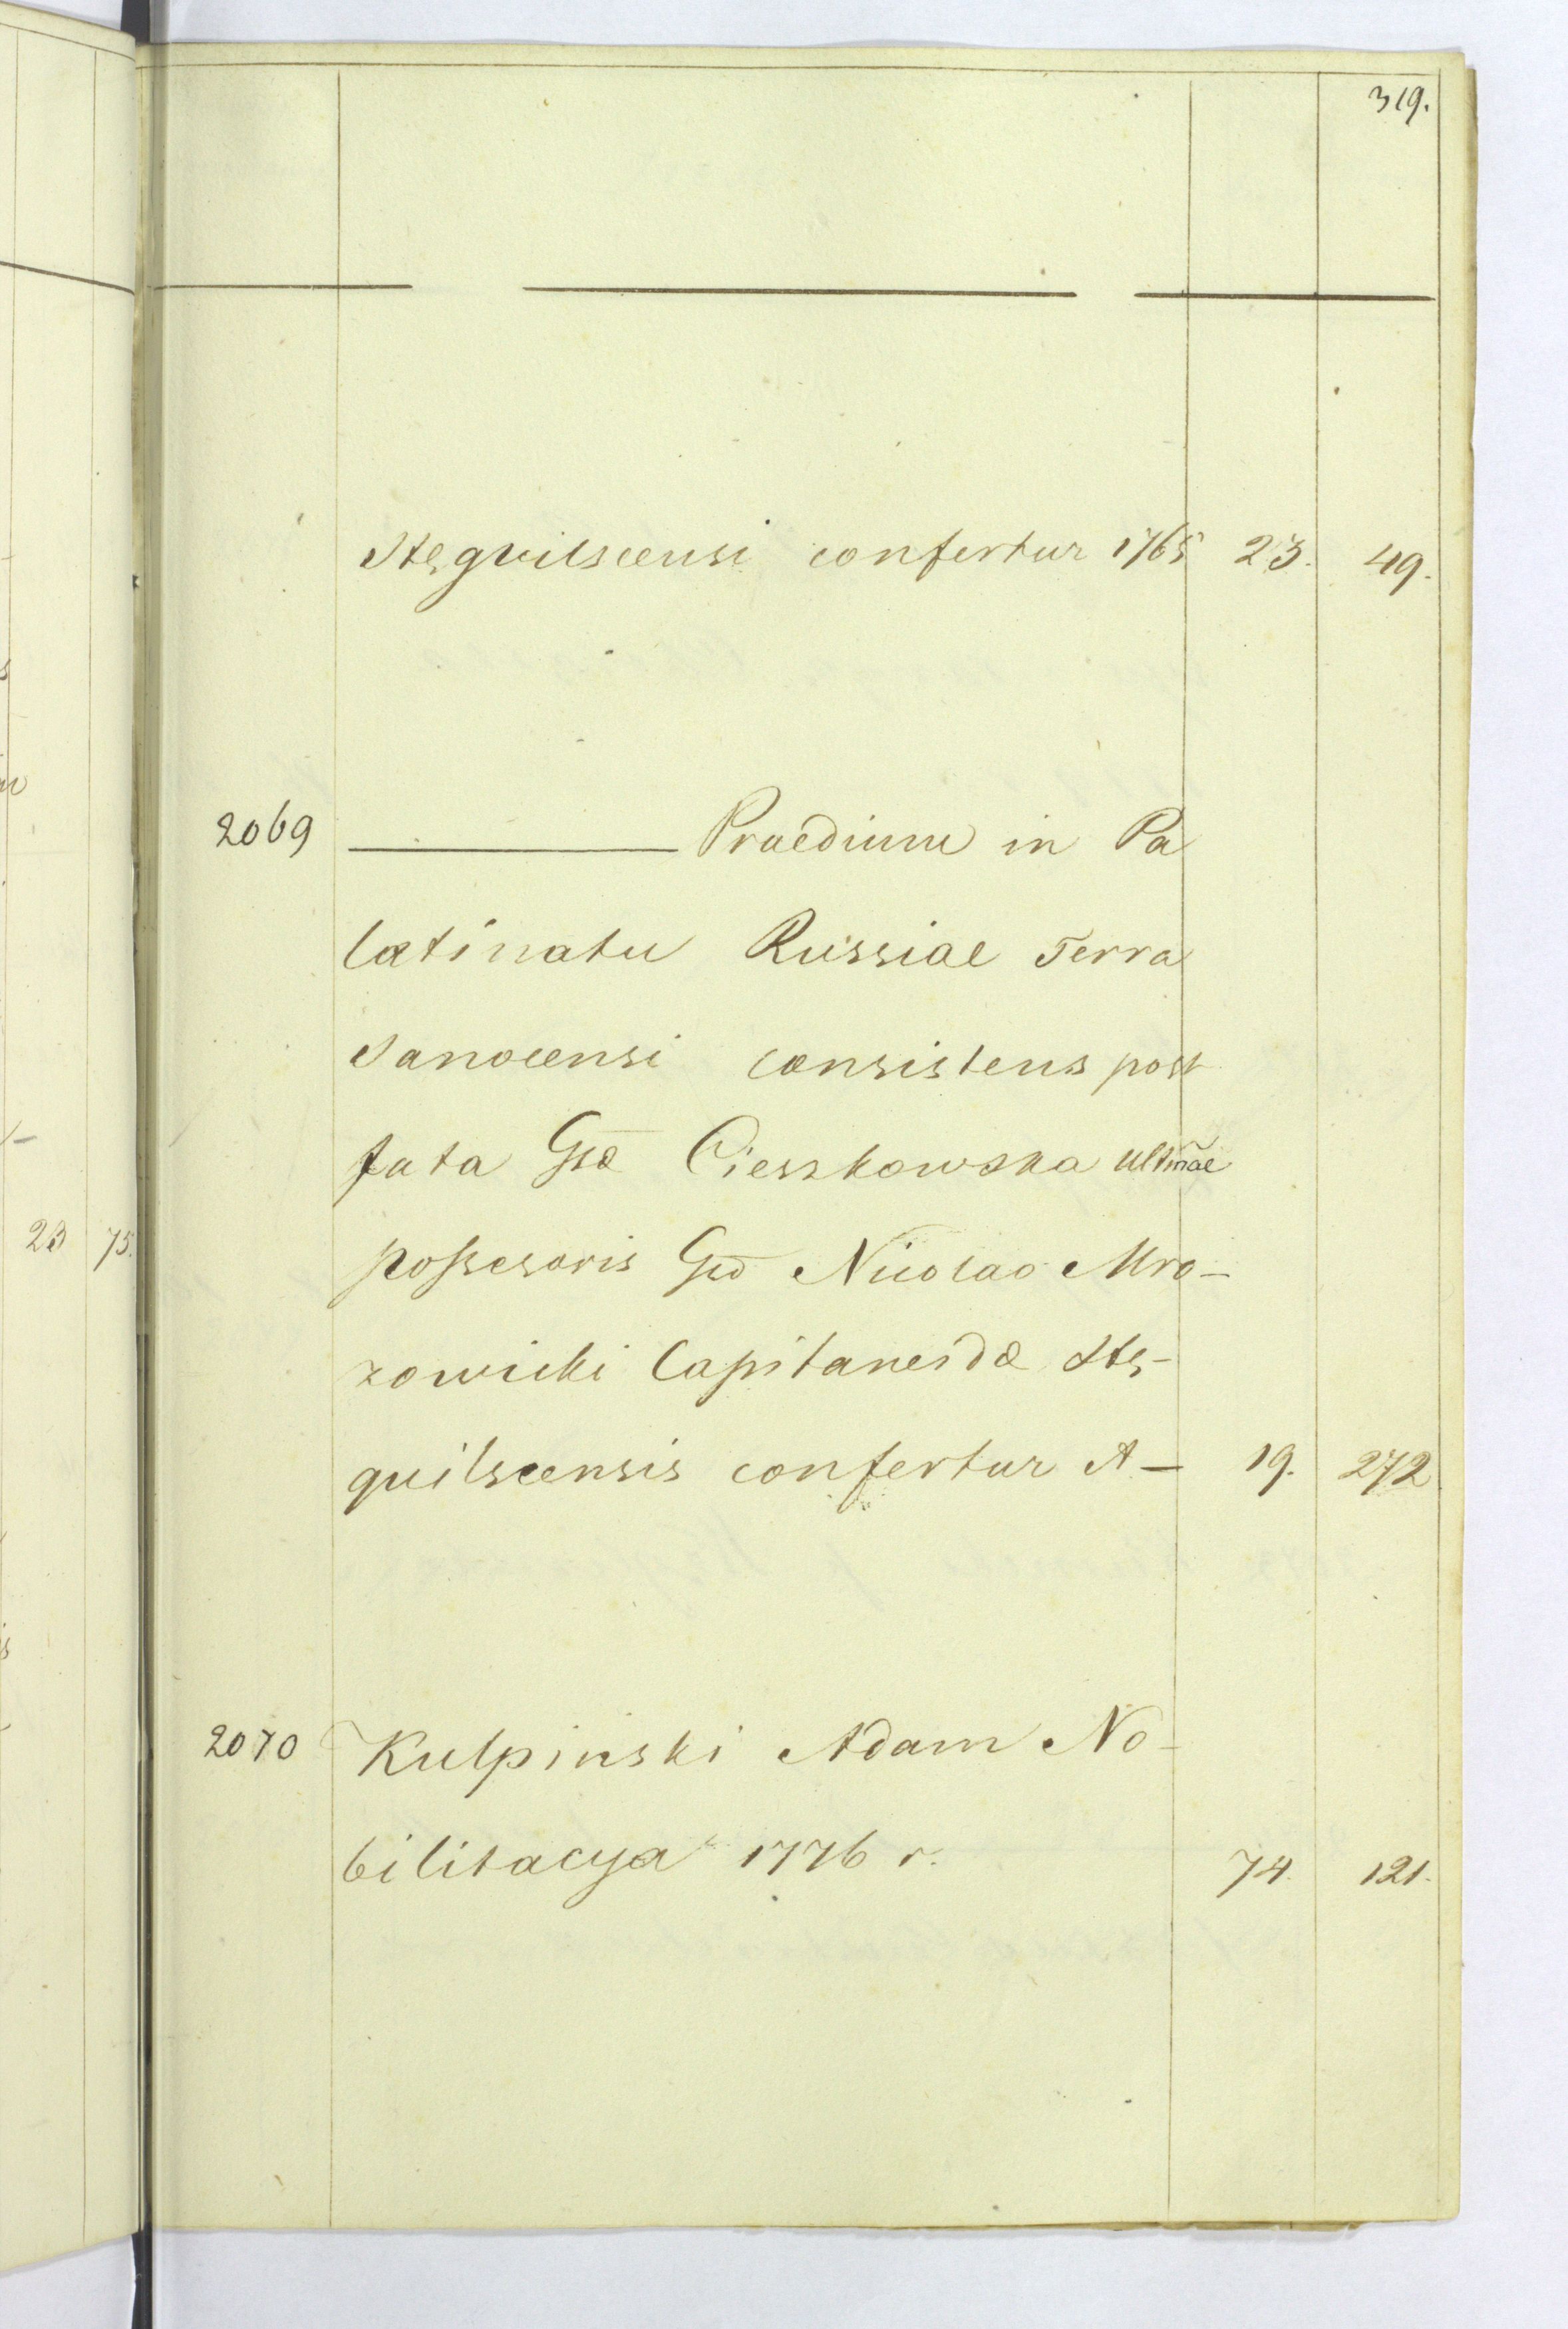 319.
Stęgvilscensi confertur 1765 23. 49.
2069 ——— Praedium in Pa
latinatu Russiae Terra
Sanocensi consistens post
fata Gsae Cieszkowska ultmae
possesoris Gso Nicolao Mro-
zowicki Capitaneidae Stę-
guilscensis confertur A — 19. 272
23 75.
2070 Kulpiński Adam No-
bilitacya 1776 r. 74. 121.